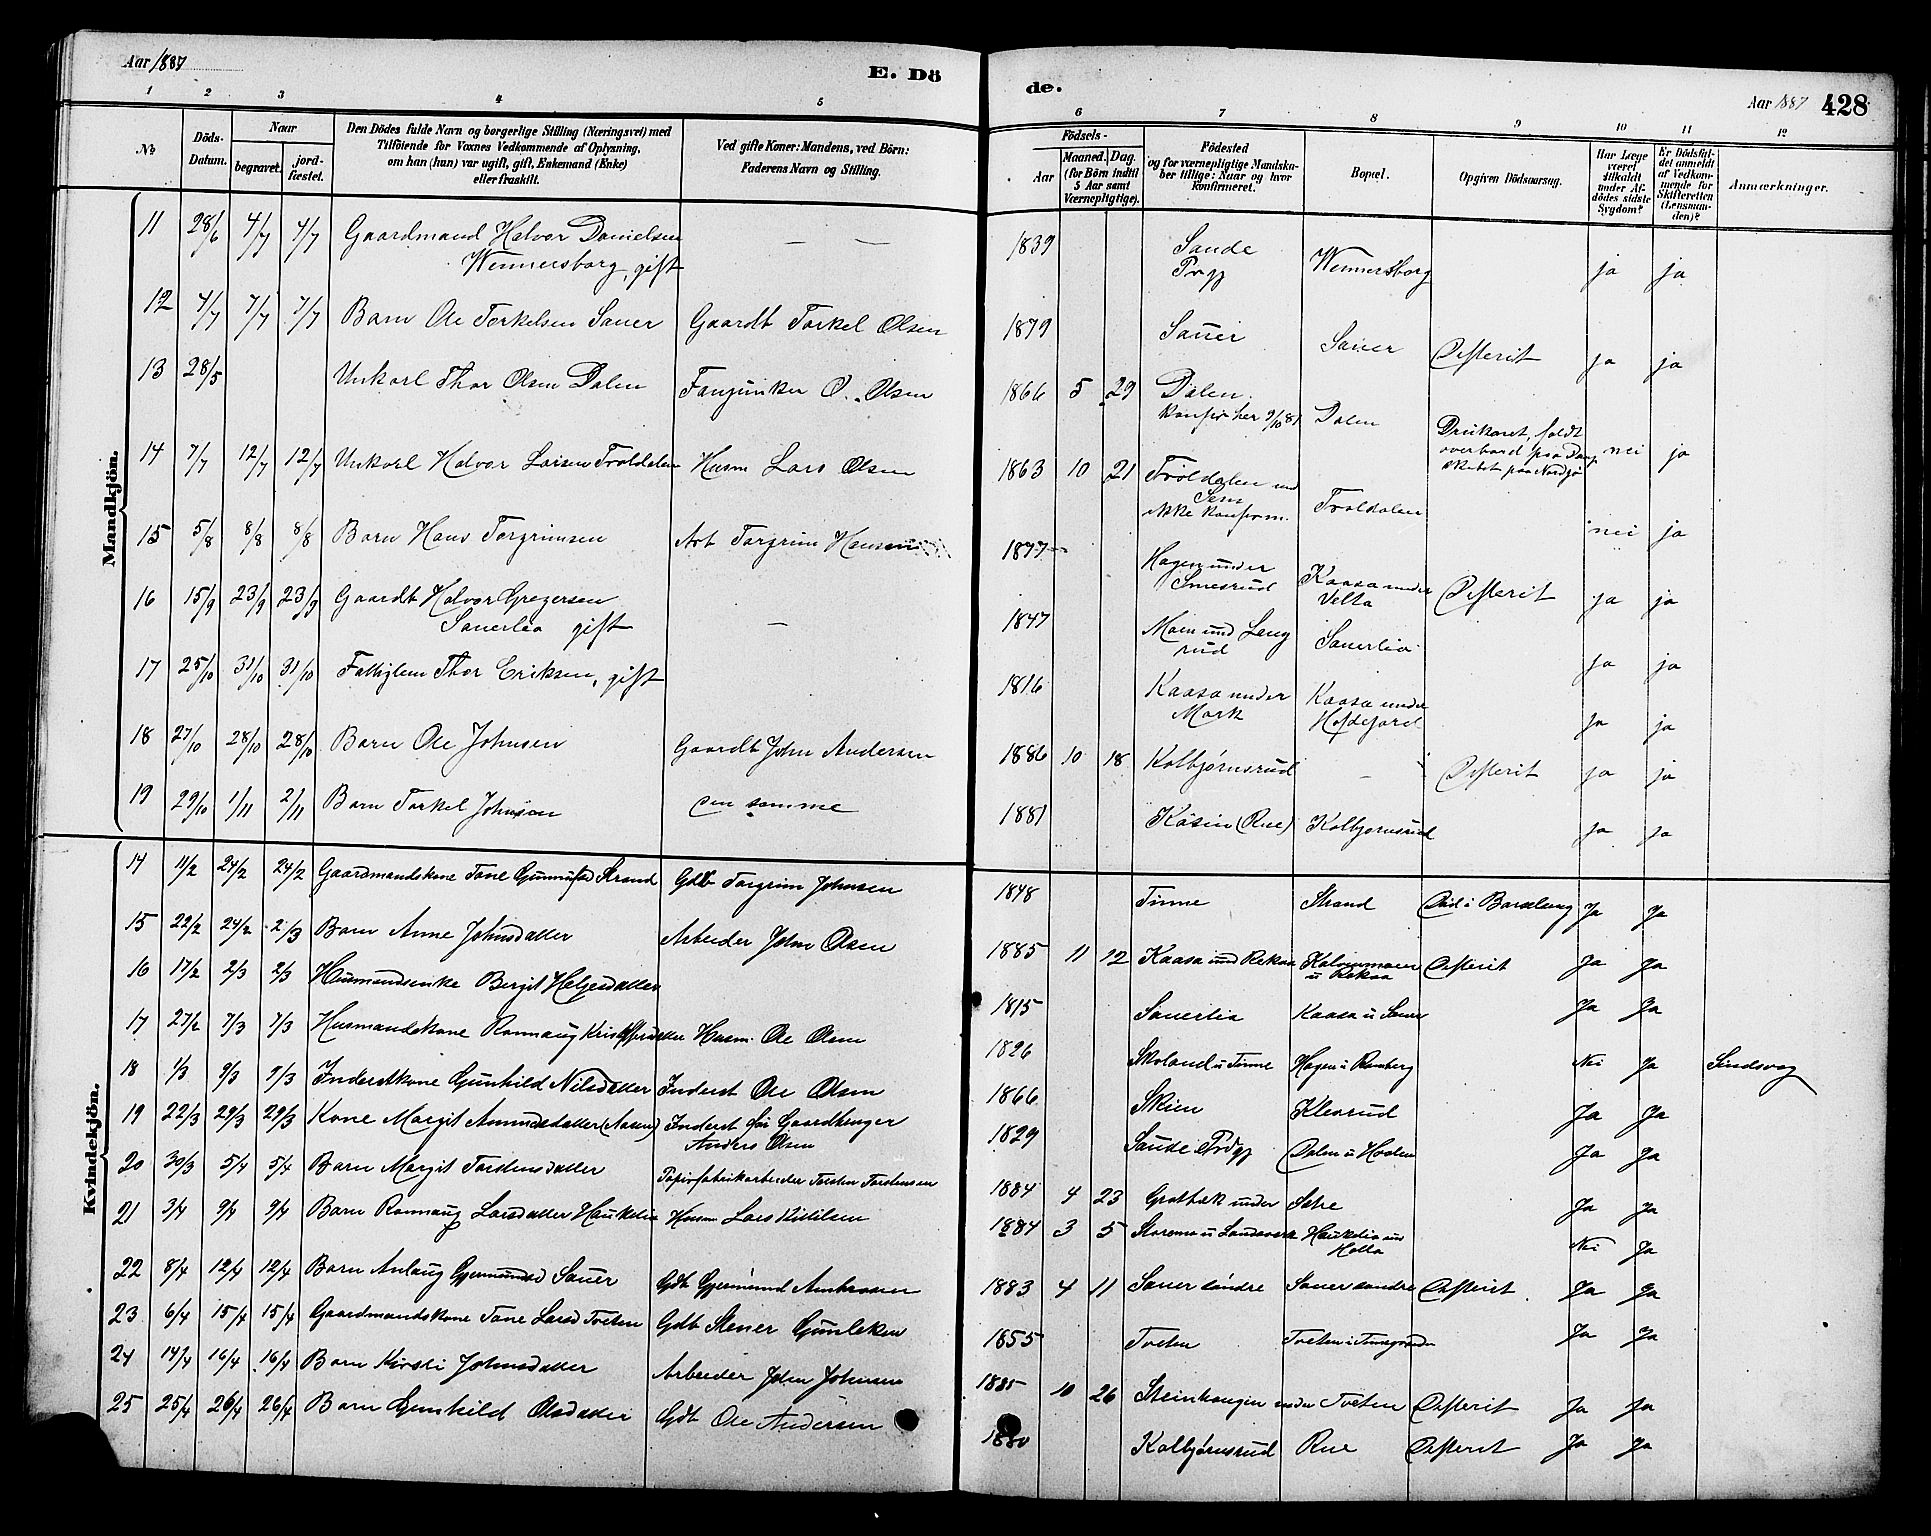 Aar 1887
E. Dö
de.
Aar 1887 428
1 2 3 4 5 6 7 8 9 10 11 12
No
Döds-Datum.
Naar
begravet.
jord-fæstet.
Den Dödes fulde Navn og borgerlige Stilling (Næringsvei) med
Tilföiende for Voxnes Vedkommende af Oplysning,
om han (hun) var ugift, gift, Enkemand (Enke)
eller fraskilt.
Ved gifte Koner: Mandens, ved Börn:
Faderens Navn og Stilling.
Födsels-
Aar
Maaned. Dag.
(for Börn indtil
5 Aar samt
Værnepligtige).
Födested
og for værnepligtige Mandska-
ber tillige: Naar og hvor
Konfirmeret.
Bopæl.
Opgiven Dödsaarsag.
Har Læge
været
tilkaldt
under Af-
dödes sidste
Sygdom?
Er Dödsfal-
det anmeldt
af Vedkom-
mende for
Skifteretten
(Lensman-
den)?
Anmærkninger.
Mandkjön.
11 28/6 4/7 4/7 Gaardmand Halvor Danielsen — — 1839 Saude
Wennersborg, gift Prgj Wennersborg ja ja
12 4/7 7/7 7/7 Barn Ole Torkelsen Sauer Gaardb Torkel Olsen 1879 Sauer Sauer Difterit ja ja
13 28/5 Unkarl Thor Olsen Dalen Fanejunker O. Olsen 1866 5 29 Dalen.
konfir her 9/10 81 Dalen Druknet, faldt
overbord fra Damp
skibet paa Nordsjø nei ja
14 7/7 12/7 12/7 Unkarl Halvor Larsen Troldalen Husm Lars Olsen 1863 10 21 Troldalen und
Sem
ikke konfirm. Troldalen nei ja
15 5/8 8/8 8/8 Barn Hans Torgrimsen Arb Torgrim Hansen 1877 Hagen under
Smesrud Kaasa under
Velta Difterit ja ja
16 15/9 23/9 23/9 Gaardb Halvor Gregersen — 1847 Moen und Leng
Sauerlia gift rud Sauerlia ja ja
17 25/10 31/10 31/10 Fattiglem Thor Eriksen, gift 1816 Kaasa under
Mork Kaasa under ja ja
18 27/10 28/10 28/10 Barn Ole Johnsen Gaardb John Andersen 1886 10 18 Kolbjørnsrud — Difterit ja ja
19 29/10 1/11 2/11 Barn Torkel Johnson den samme 1881 Kåsin (Rue) Kolbjørnsrud ja ja
Kvindekjön.
14 11/2 24/2 24/2 Gaardmandskone Tone Strand Gdb Torgrim Johnsen 1848 Tinne Strand Död i Barselseng Ja Ja
15 22/2 24/2 2/3 Barn Anne Johnsdatter Arbeider John Olsen 1885 11 12 Kaasa und Rekaa
u Rekaa Difterit Ja Ja
16 17/2 2/3 2/3 Husmandsenke Bergit Helgesdatter 1815 Sauerlia Kaasa u Sauer Ja Ja
17 27/2 7/3 7/3 Husmandskone Rannaug Kristoffersdatter Husm. Ole Olsen 1826 Skoland u Tinne Hagen u Romberg Nei Ja Sindsvag
18 1/3 9/3 9/3 Inderstkone Gunhild Nilsdatter Inderst Ole Olsen 1866 Skien Klevrud Ja Ja
19 22/3 29/3 29/3 Kone Margit Amundsdatter (Aasen) Inderst för Gaardbruger
Anders Olsen 1829 Saude Prdgj Dalen u Holen Ja Ja
20 30/3 5/4 5/4 Barn Margit Torstensdatter Papirfabrikarbeider Torsten Torstensen 1884 4 23 Grotbæk under Sætre Ja Ja
21 3/4 9/4 9/4 Barn Rannaug Larsdatter Haukelia Husm Lars Kittilsen 1884 3 5 Haukelia und
Holta Nei Ja
22 8/4 12/4 12/4 Barn Anlaug Gjermundsd Sauer Gdb Gjermund Ambrosen 1883 4 11 Sauer söndre Sauer söndre Difterit Ja Ja
23 6/4 15/4 15/4 Gaardmandskone Tone Larsd Tveten Gdb Stener Gunleksen 1855 Tveten Ja Ja
24 14/4 16/4 16/4 Barn Kirsti Johnsdatter Arbeider John Johnsen 1885 10 26 Steinhaugen under Tveten Difterit Ja Ja
25 25/4 26/4 26/4 Barn Gunhild Olsdatter Gdb Ole Andersen 1880 Kolbjørnsrud Rue Difterit Ja Ja